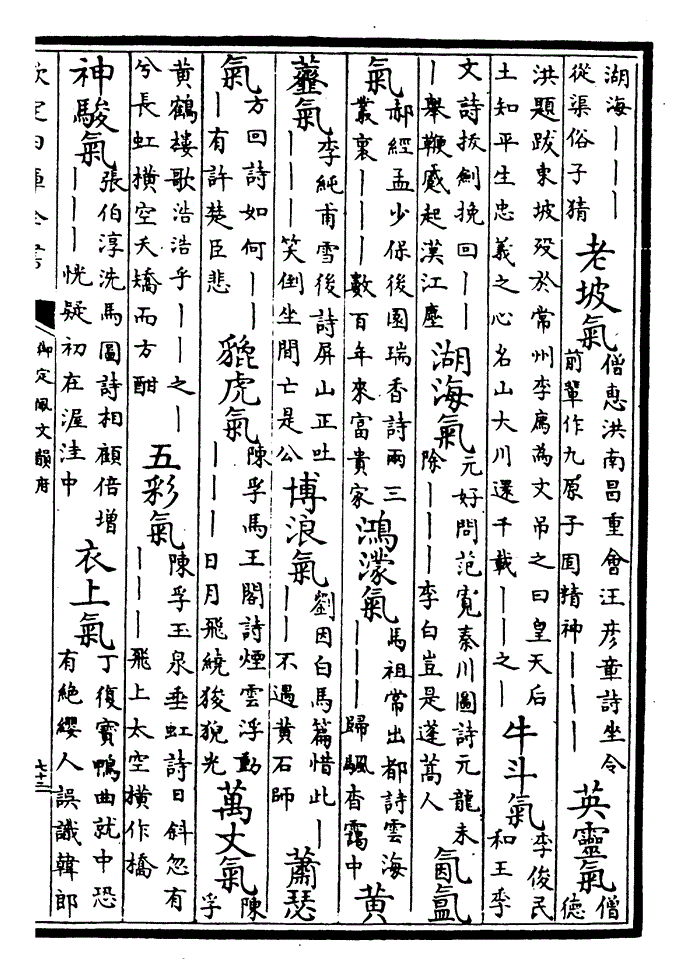 湖海｜｜｜
從渠俗子猜
老坡氣
僧惠洪南昌重會汪彥章詩坐令
前輩作九原子固精神｜｜｜
英靈氣
僧
德
洪題跋東坡歿於常州李廌為文吊之曰皇天后
土知平生忠義之心名山大川還千載｜｜之｜
牛斗氣
李俊民
和王李
文詩拔劍挽回｜｜
｜舉鞭感起漢江塵
湖海氣
元好問范寬秦川圖詩元龍未
除｜｜｜李白豈是蓬蒿人
氤氳
氣
郝經孟少保後園瑞香詩兩三
叢裏｜｜｜數百年來富貴家
鴻濛氣
馬祖常出都詩雲海
｜｜｜歸颿杳靄中
黄
虀氣
李純甫雪後詩屏山正吐
｜｜｜笑倒坐間亡是公
博浪氣
劉因白馬篇惜此｜
｜｜不遇黄石師
蕭瑟
氣
方回詩如何｜｜
｜有許楚臣悲
貔虎氣
陳孚馬王閣詩煙雲浮動
｜｜｜日月飛繞狻猊光
萬丈氣
陳
孚
黄鶴樓歌浩浩乎｜｜之｜
兮長虹橫空夭矯而方酣
五彩氣
陳孚玉泉垂虹詩日斜忽有
｜｜｜飛上太空橫作橋
神駿氣
張伯淳洗馬圖詩相顧倍增
｜｜｜恍疑初在渥洼中
衣上氣
丁復寶鴨曲就中恐
有絶纓人誤識韓郎
欽定四庫全書
御定佩文韻府
七十三